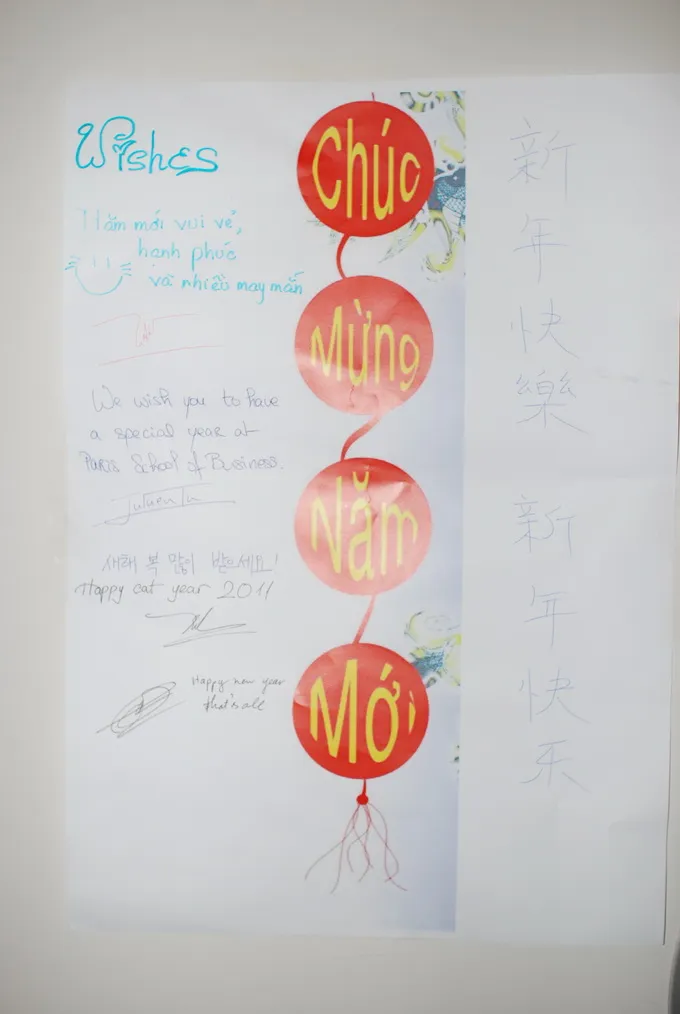 Wishes
Năm mới vui vẻ,
hạnh phúc
và nhiều may mắn
We wish you to have
a special year at
PARIS School of Business.
새해 복 많이 받으세요!
Happy cat year 2011
Happy new year
that's all
Chúc
Mừng
Năm
Mới
新年快樂
新年快乐